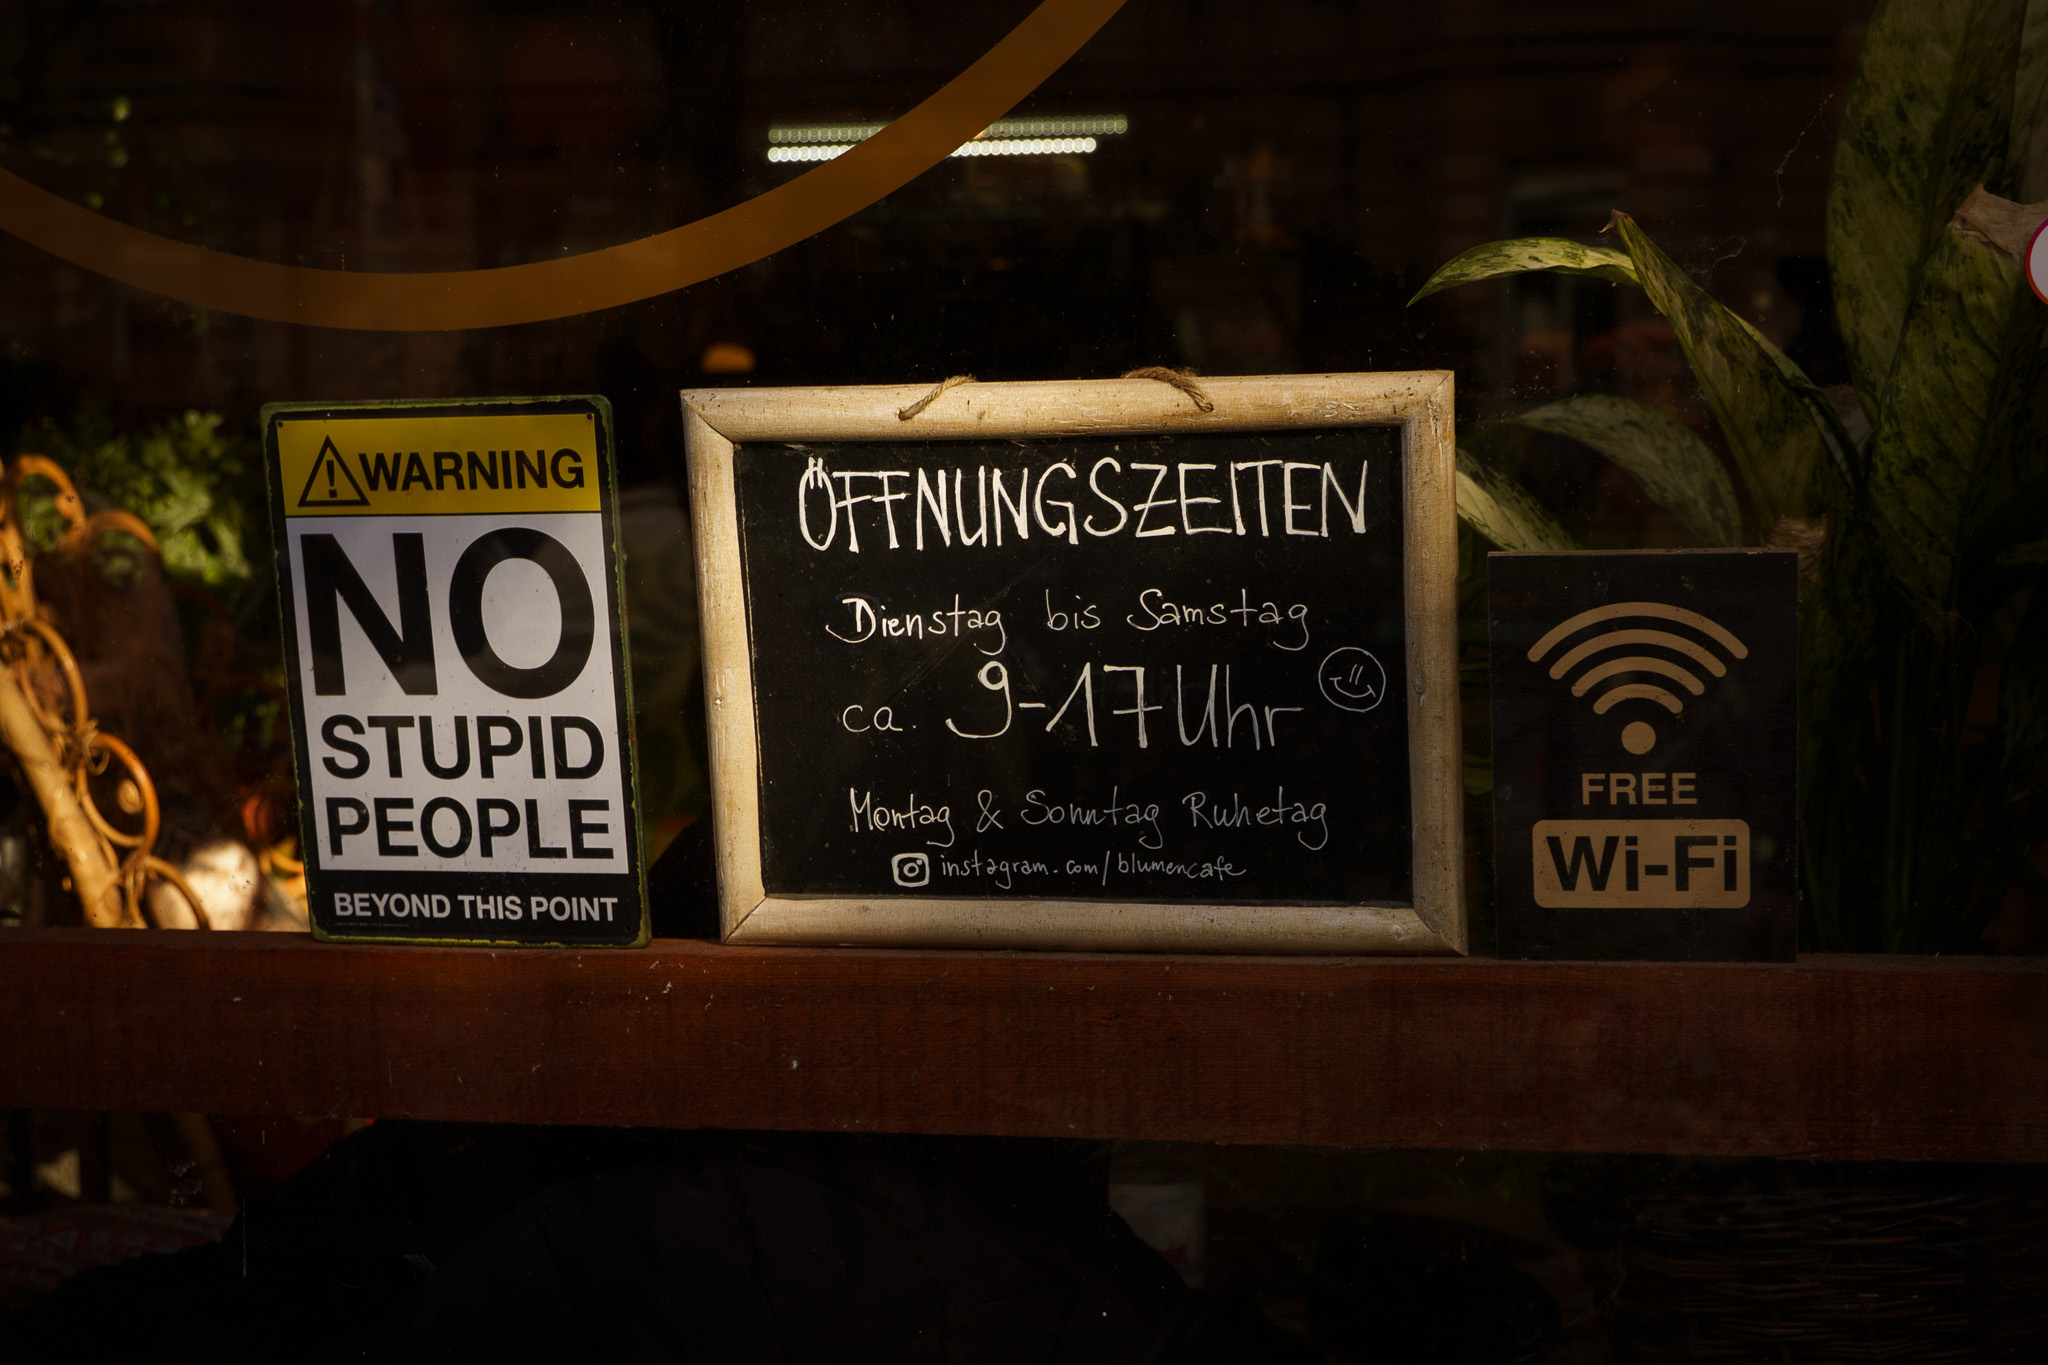 WARNING
NO
STUPID
PEOPLE
BEYOND THIS POINT
ÖFFNUNGSZEITEN
Dienstag bis Samstag
ca. 9-17 Uhr
Montag & Sonntag Ruhetag
instagram.com/blumencafe
FREE
Wi-Fi